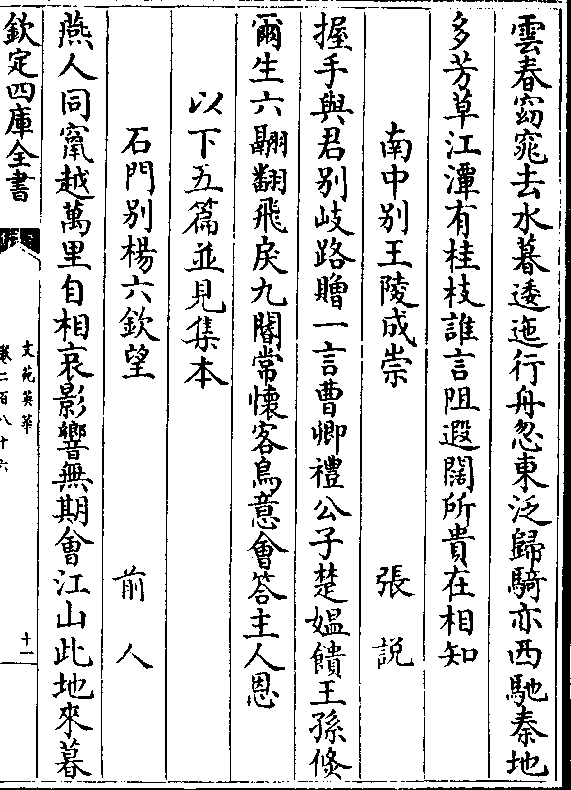 雲春窈窕去水暮逶迤行舟忽東泛歸騎亦西馳秦地
多芳草江潭有桂枝誰言阻遐闊所貴在相知
南中别王陵成崇 張說
握手與君别岐路贈一言曹卿禮公子楚媪饋王孫倐
爾生六翮翻飛戾九閽常懷客鳥意會答主人恩
以下五篇並見集本
石門别楊六欽望 前人
燕人同竄越萬里自相哀影響無期會江山此地來暮
欽定四庫全書
文苑英華
卷二百八十六
十一